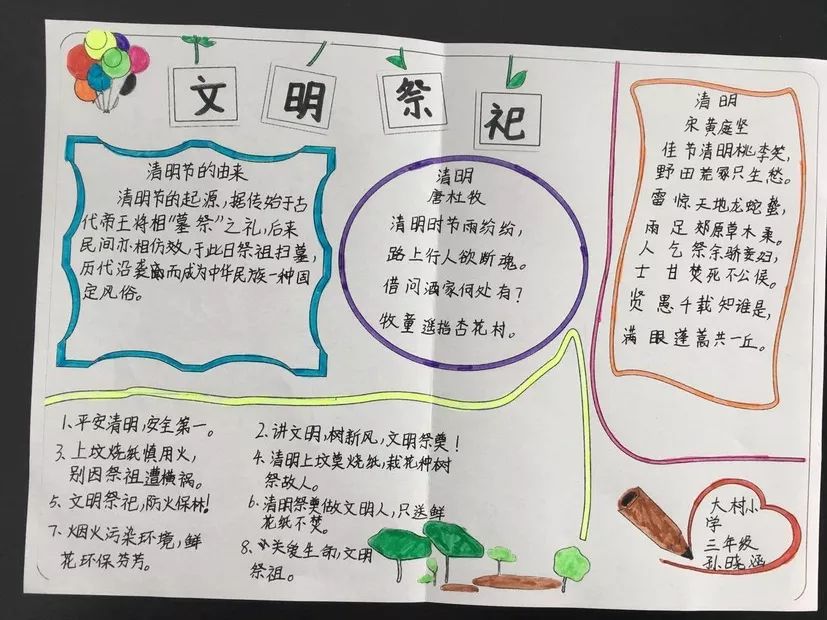 文明祭祀
清明节的由来
清明节的起源，据传始于古
代帝王将相"墓祭"之礼，后来
民间亦相仿效，于此日祭祖扫墓，
历代沿袭而成为中华民族一种固
定风俗。
清明
唐杜牧
清明时节雨纷纷，
路上行人欲断魂。
借问酒家何处有？
牧童遥指杏花村。
清明
宋黄庭坚
佳节清明桃李笑，
野田荒冢只生愁。
雷惊天地龙蛇蛰，
雨足郊原草木柔。
人乞祭余骄妾妇，
士甘焚死不公侯。
贤愚千载知谁是，
满眼蓬蒿共一丘。
1、平安清明，安全第一。
2、讲文明，树新风，文明祭奠！
3、上坟烧纸慎用火，
别因祭祖遭横祸。
4、清明上坟莫烧纸，栽花种树
祭故人。
5、文明祭祀，防火保林！
6、清明祭奠做文明人，只送鲜
花纸不焚。
7、烟火污染环境，鲜
花环保芬芳。
8、关爱生命，文明
祭祖。
大村小
学
三年级
孙晓涵